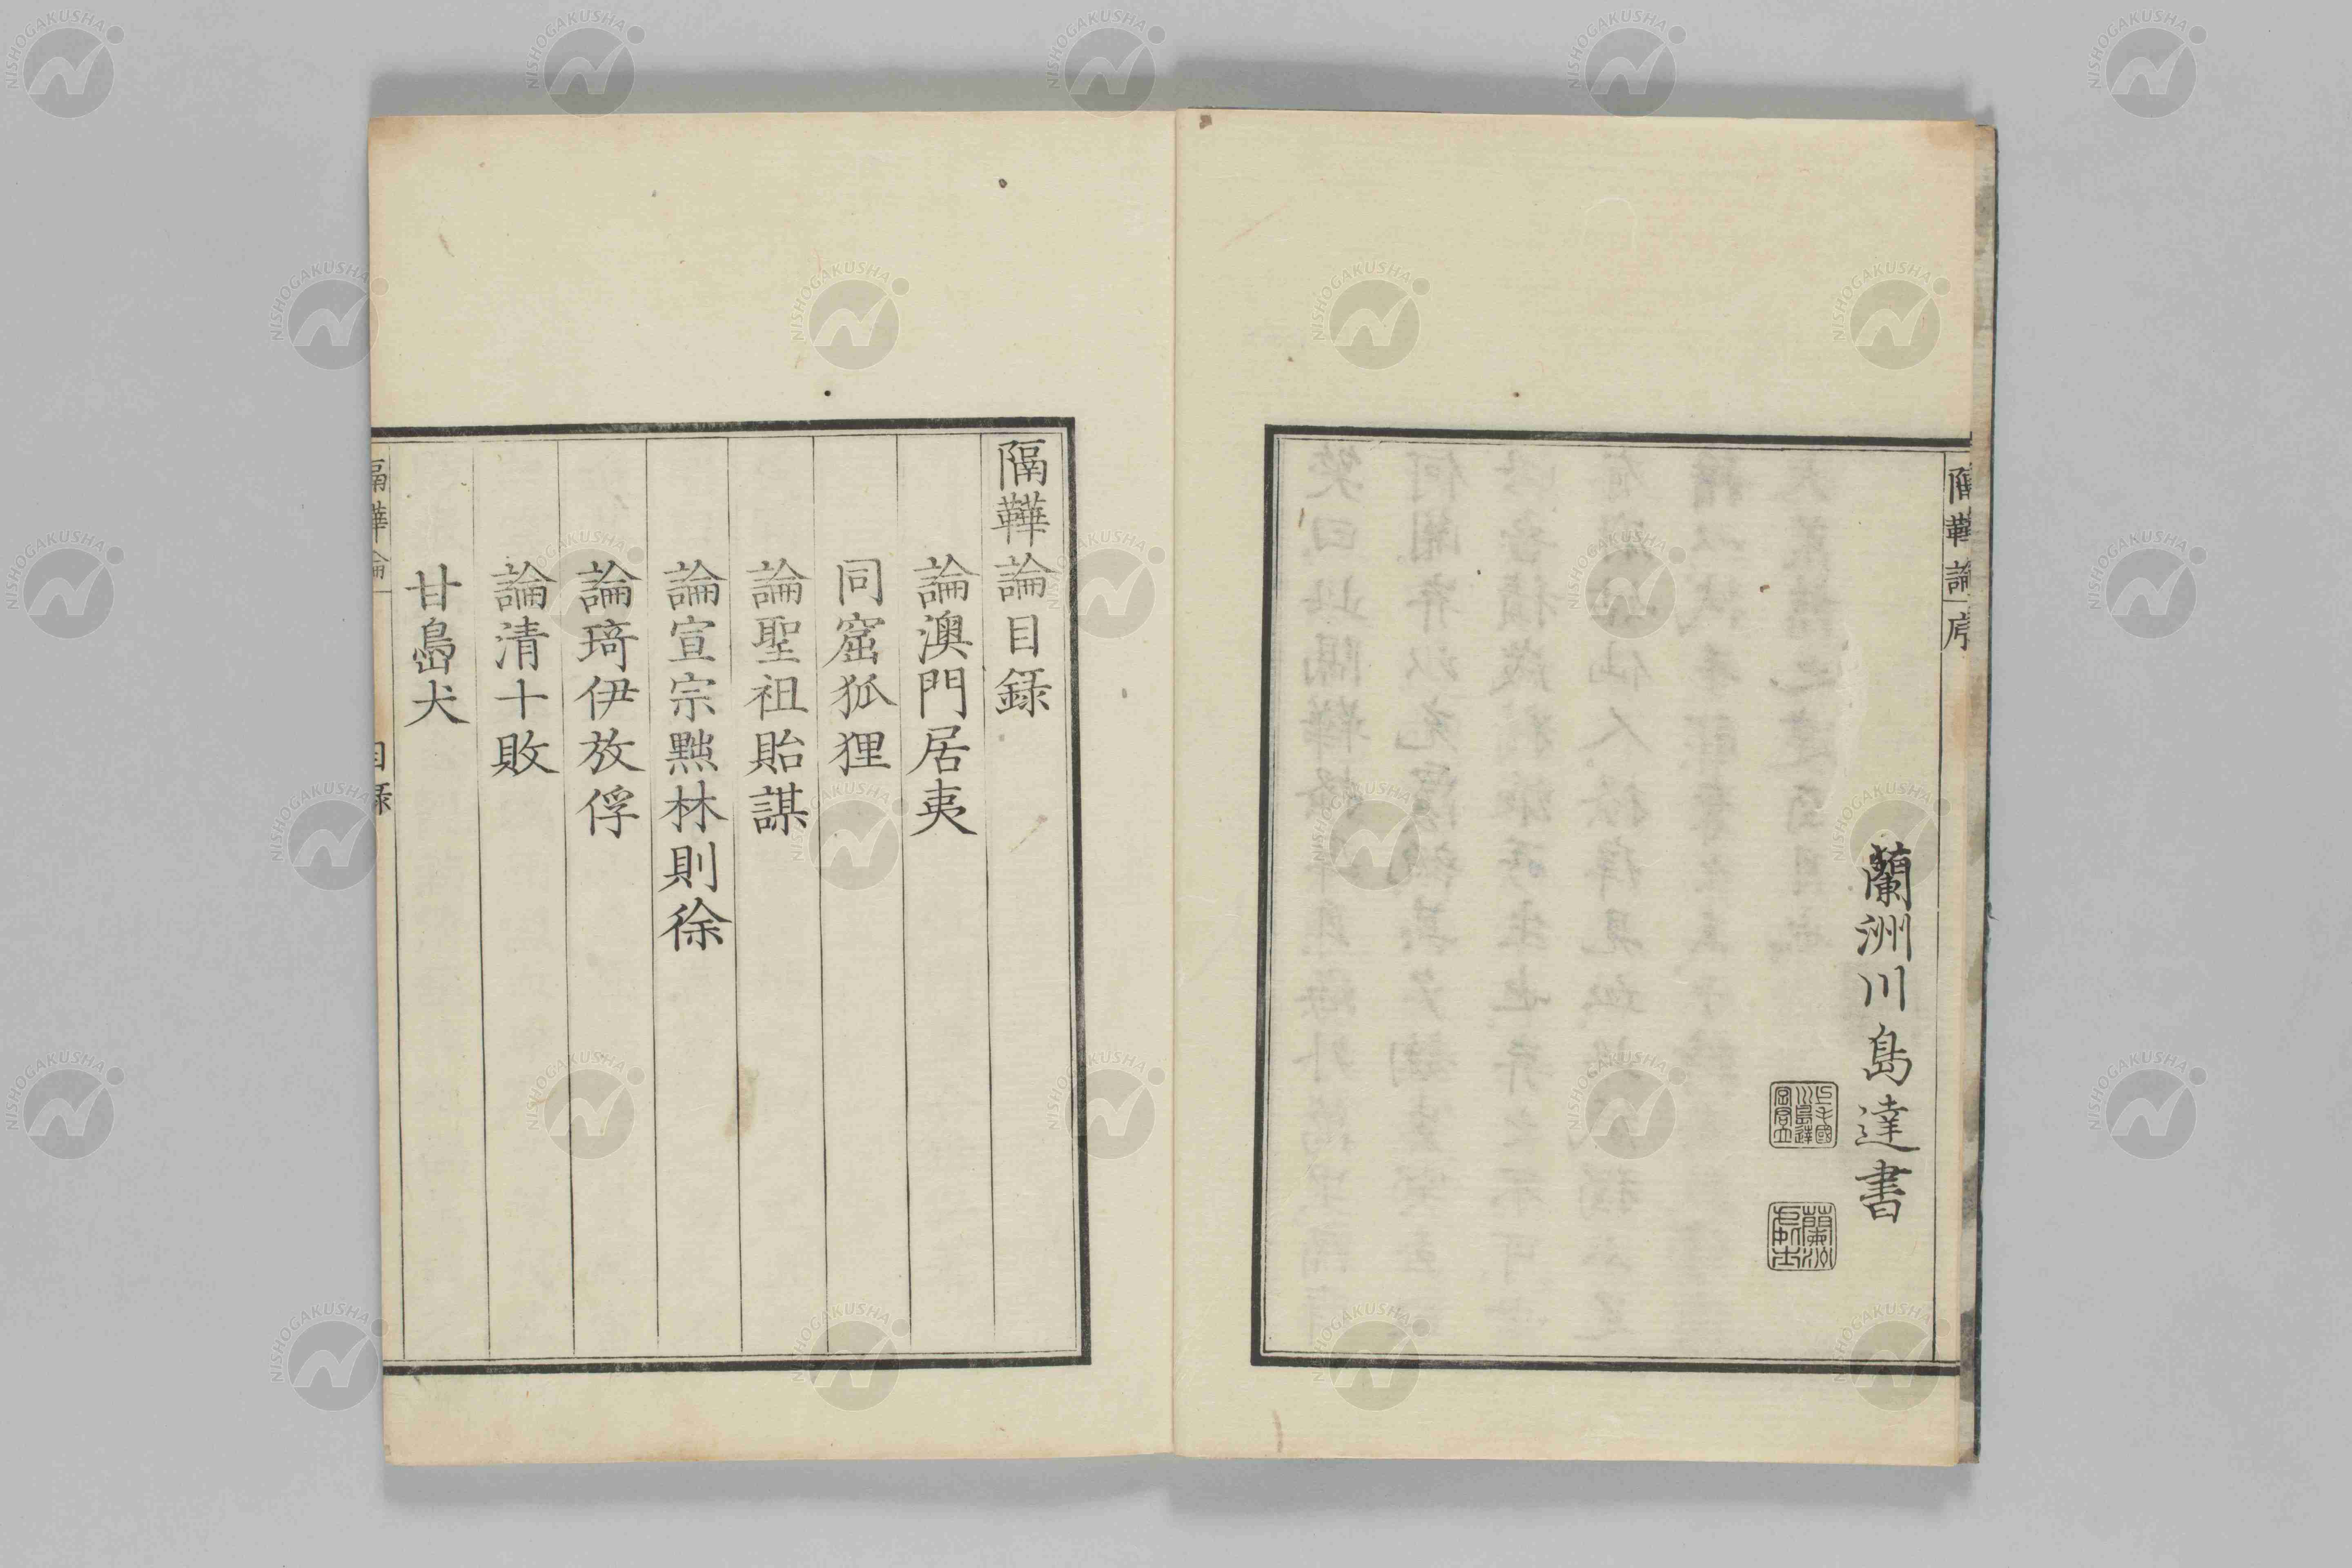 隔鞾論 序
蘭洲川島達書
隔鞾論目録
論澳門居夷
同窟狐狸
論聖祖貽謀
論宣宗黜林則徐
論琦伊放俘
論清十敗
甘島犬
隔鞾論 目録
NISHOGAKUSHA